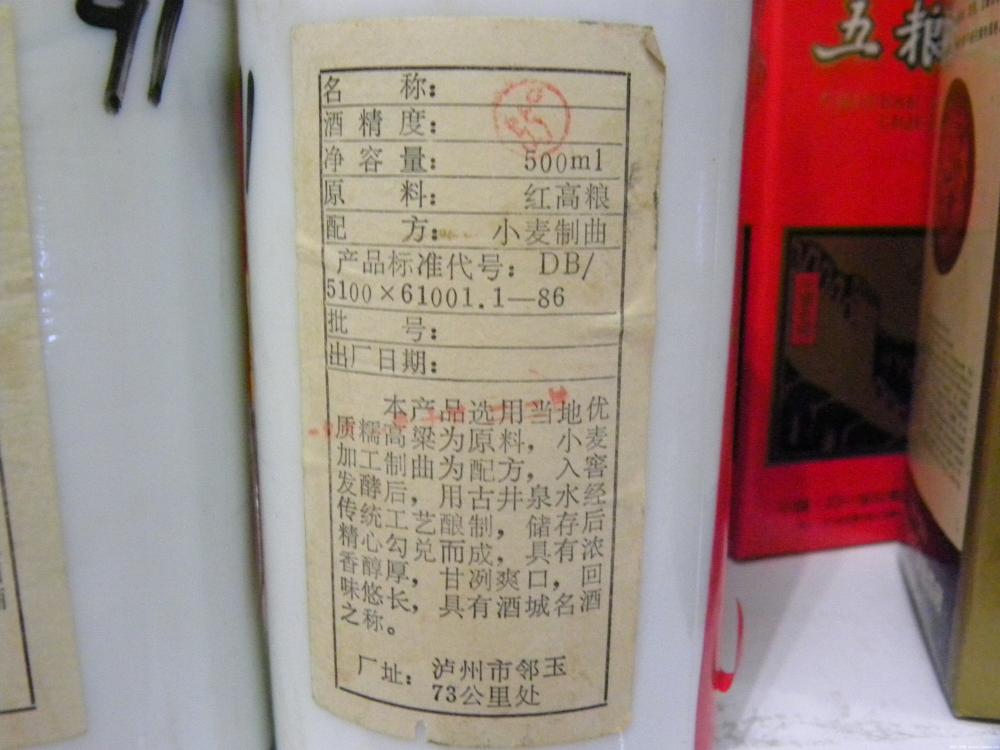 91
五粮
名 称:
酒精度:
净容量: 500ml
原 料: 红高粮
配 方: 小麦制曲
产品标准代号: DB/
5100×61001.1—86
批 号:
出厂日期:
本产品选用当地优
质糯高梁为原料, 小麦
加工制曲为配方, 入窖
发酵后, 用古井泉水经
传统工艺酿制, 储存后
精心勾兑而成, 具有浓
香醇厚, 甘冽爽口, 回
味悠长, 具有酒城名酒
之称。
厂址: 泸州市邻玉
73公里处